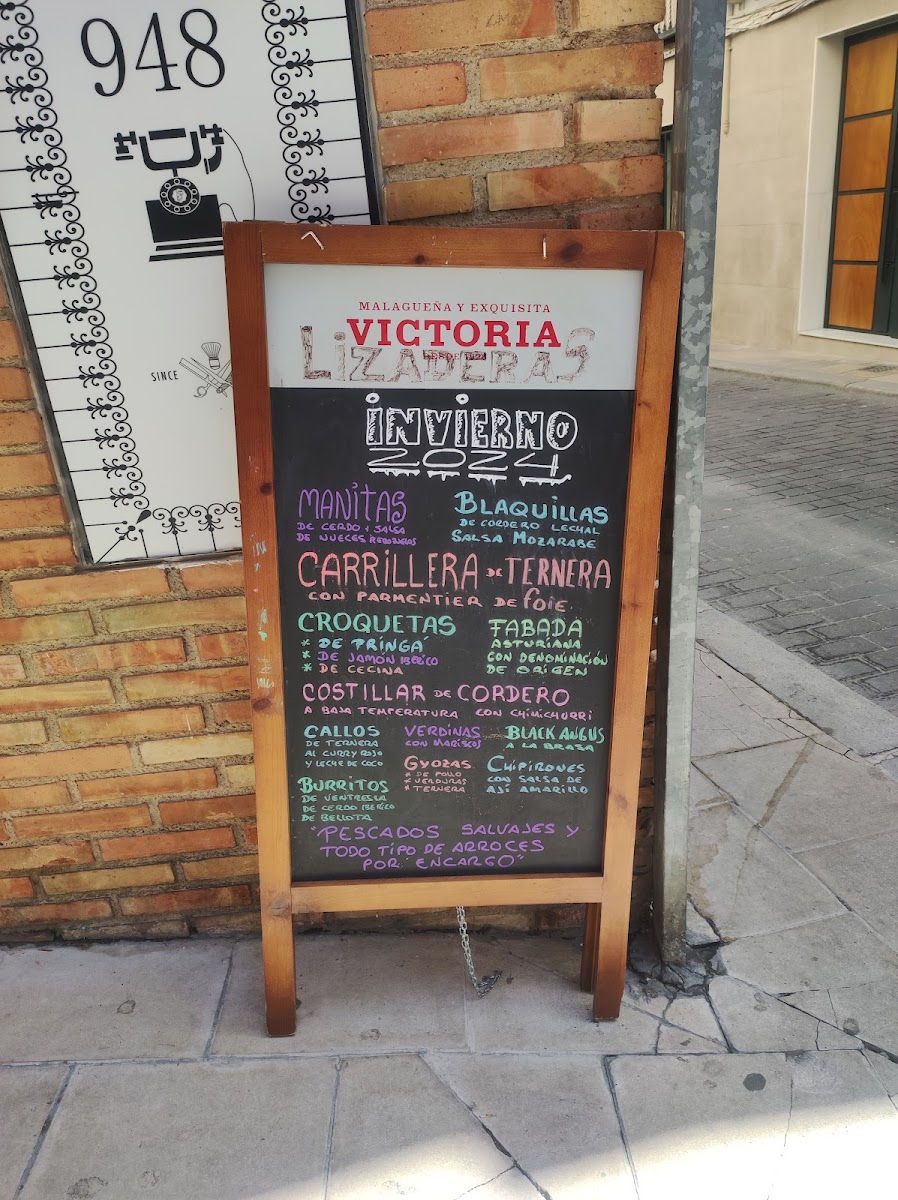 948
SINCE
MALAGUEÑA Y EXQUISITA
VICTORIA
LIZADERAS
INVIERNO
2024
MANITAS
DE CERDO Y SALSA
DE NUECES
BLAQUILLAS
DE CORDERO LECHAL
SALSA MOZARABE
CARRILLERA DE TERNERA
CON PARMENTIER DE foie
CROQUETAS
* DE PRINGÁ
* DE JAMÓN IBÉRICO
* DE CECINA
FABADA
ASTURIANA
CON DENOMINACIÓN
DE ORIGEN
COSTILLAR DE CORDERO
A BAJA TEMPERATURA CON CHIMICHURRI
CALLOS
DE TERNERA
AL CURRY ROJO
Y LECHE DE COCO
VERDINAS
CON MARISCOS
BLACK ANGUS
A LA BRASA
GYOZAS
* DE POLLO
* VERDURAS
* TERNERA
CHIPIRONES
CON SALSA DE
AJÍ AMARILLO
BURRITOS
DE VENTRESCA
DE CERDO IBÉRICO
DE BELLOTA
"PESCADOS SALVAJES Y
TODO TIPO DE ARROCES
POR ENCARGO"